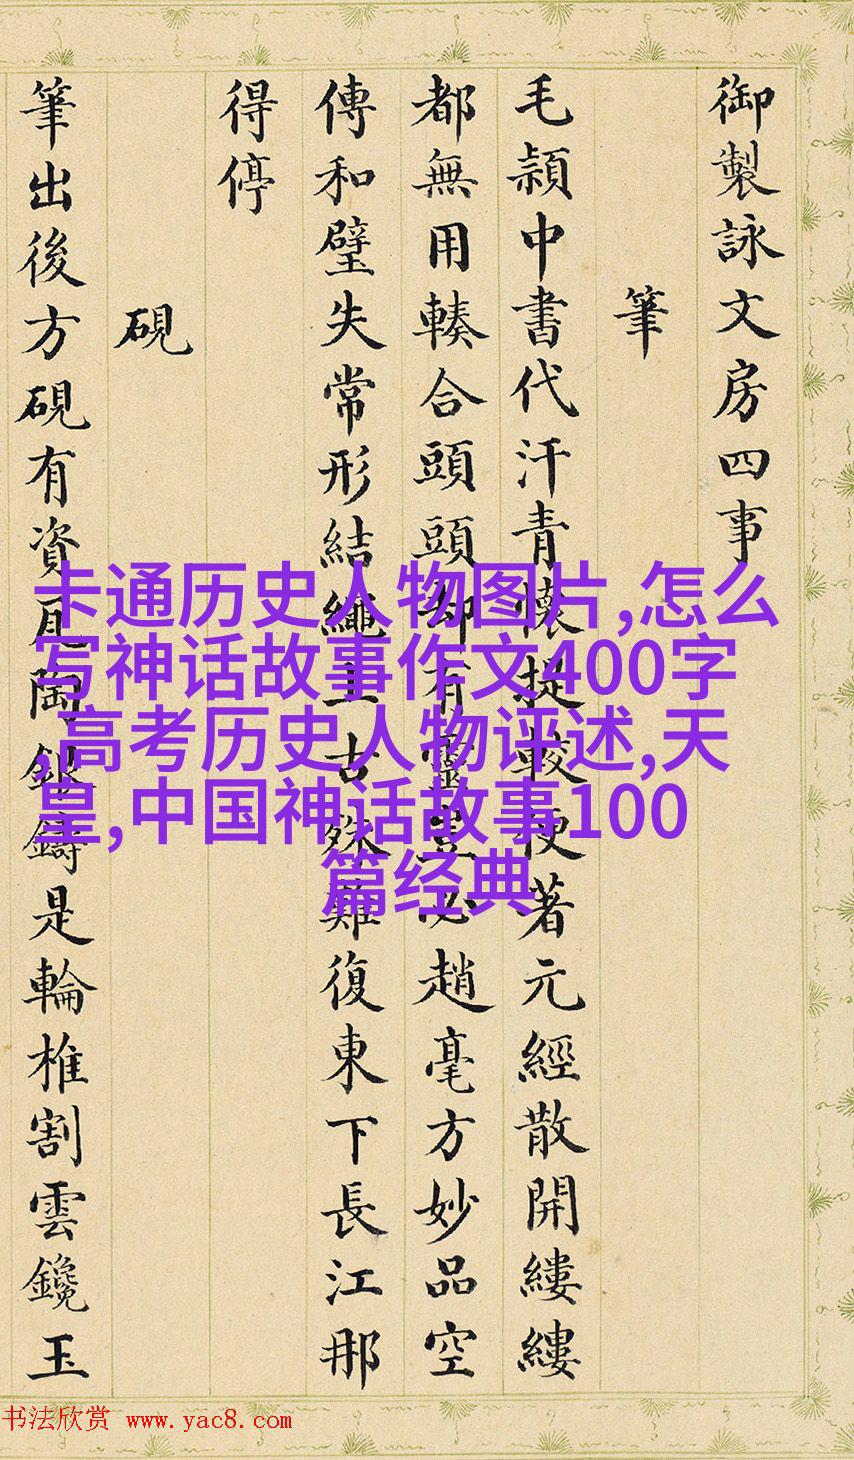 御製詠文房四事
筆
毛穎中書代汗青懷提較便著元經散開縷縷
都無用輳合頭頭却有靈豈必趙毫方妙品空
傳和璧失常形結繩上古殊難復東下長江那
得停
硯
筆出後方硯有資瓦陶銀鑄是輪椎割雲鑱玉
卡通历史人物图片,怎么
写神话故事作文400字
,高考历史人物评述,天
皇,中国神话故事100
篇经典
书法欣赏 www.yac8.com